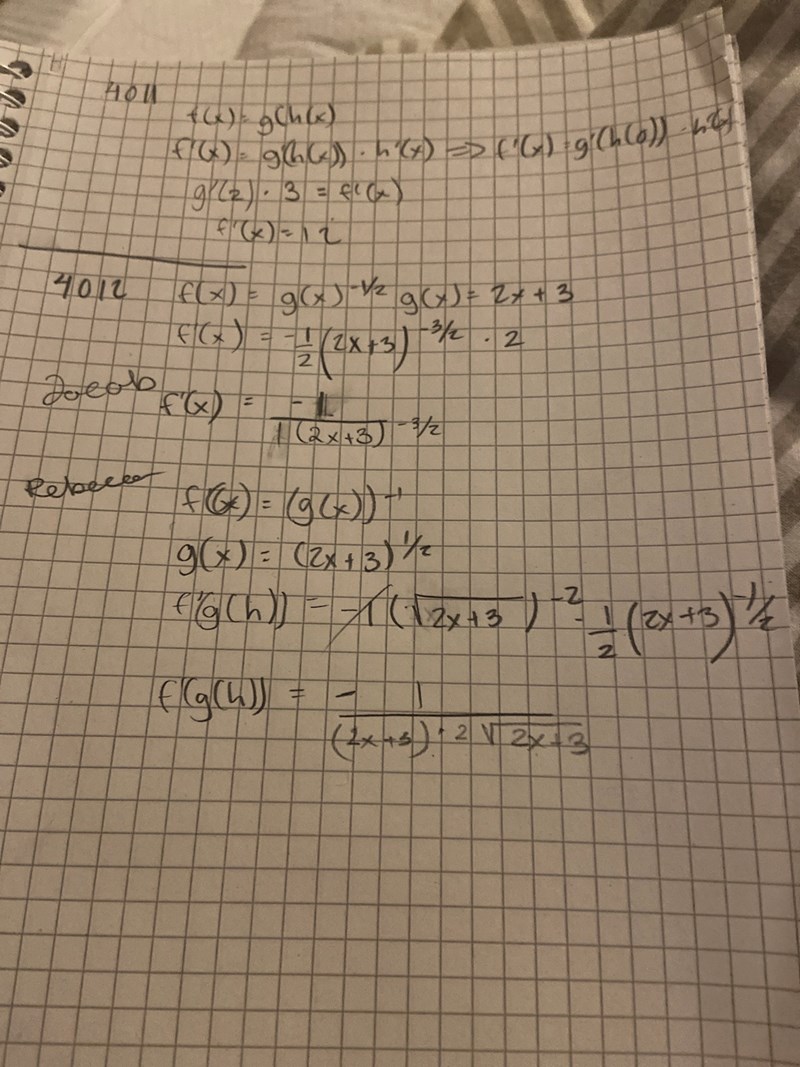 4011
f(x) = g(h(x)
f'(x) = g'(h(x)) · h'(x) => f'(x) = g'(h(0)) · h'(x)
g'(2) · 3 = f'(x)
f'(x) = 12
4012 f(x) = g(x)^-1/2 g(x) = 2x + 3
f'(x) = -1/2 (2x+3)^-3/2 · 2
f'(x) = -1 / 1(2x+3)^-3/2
f(x) = (g(x))^-1
g(x) = (2x+3)^1/2
f'(g(h)) = -1(√2x+3)^-2 · 1/2 (2x+3)^-1/2
f'(g(h)) = - 1 / (2x+3) · 2√2x+3